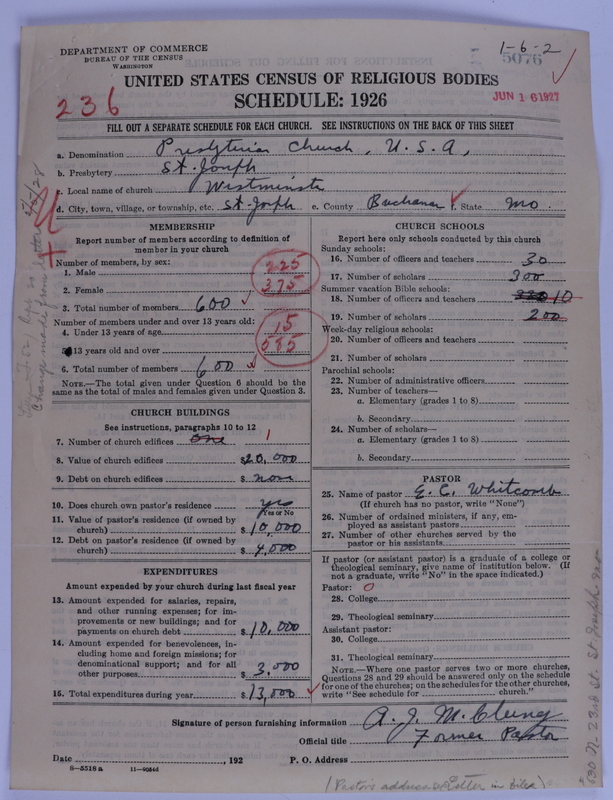 DEPARTMENT OF COMMERCE
BUREAU OF THE CENSUS
WASHINGTON
1-6-2
5076
UNITED STATES CENSUS OF RELIGIOUS BODIES
SCHEDULE: 1926
236
JUN 16 1927
FILL OUT A SEPARATE SCHEDULE FOR EACH CHURCH. SEE INSTRUCTIONS ON THE BACK OF THIS SHEET
a. Denomination Presbyterian Church, U.S.A.
b. Presbytery St. Joseph
c. Local name of church Westminster
d. City, town, village, or township, etc. St. Joseph e. County Buchanan f. State Mo.
MEMBERSHIP
Report number of members according to definition of
member in your church
Number of members, by sex:
1. Male 225
2. Female 375
3. Total number of members 600
Number of members under and over 13 years old:
4. Under 13 years of age 15
5. 13 years old and over 585
6. Total number of members 600
NOTE.—The total given under Question 6 should be the
same as the total of males and females given under Question 3.
CHURCH BUILDINGS
See instructions, paragraphs 10 to 12
7. Number of church edifices one 1
8. Value of church edifices $20,000
9. Debt on church edifices $ none
10. Does church own pastor's residence yes
Yes or No
11. Value of pastor's residence (if owned by
church) $10,000
12. Debt on pastor's residence (if owned by
church) $4,000
EXPENDITURES
Amount expended by your church during last fiscal year
13. Amount expended for salaries, repairs,
and other running expenses; for im-
provements or new buildings; and for
payments on church debt $10,000
14. Amount expended for benevolences, in-
cluding home and foreign missions; for
denominational support; and for all
other purposes $3,000
15. Total expenditures during year $13,000
CHURCH SCHOOLS
Report here only schools conducted by this church
Sunday schools:
16. Number of officers and teachers 30
17. Number of scholars 300
Summer vacation Bible schools:
18. Number of officers and teachers 10
19. Number of scholars 200
Week-day religious schools:
20. Number of officers and teachers
21. Number of scholars
Parochial schools:
22. Number of administrative officers
23. Number of teachers—
a. Elementary (grades 1 to 8)
b. Secondary
24. Number of scholars—
a. Elementary (grades 1 to 8)
b. Secondary
PASTOR
25. Name of pastor E. C. Whitcomb
(If church has no pastor, write "None")
26. Number of ordained ministers, if any, em-
ployed as assistant pastors
27. Number of other churches served by the
pastor or his assistants
If pastor (or assistant pastor) is a graduate of a college or
theological seminary, give name of institution below. (If
not a graduate, write "No" in the space indicated.)
Pastor: 0
28. College
29. Theological seminary
Assistant pastor:
30. College
31. Theological seminary
NOTE.—Where one pastor serves two or more churches,
Questions 28 and 29 should be answered only on the schedule
for one of the churches; on the schedules for the other churches,
write "See schedule for church."
Signature of person furnishing information A. J. McClung
Official title Former Pastor
Date , 192 P. O. Address
8—5518 a 11—9054d
(Pastor's address & letter in files)
St. Joseph, Mo.